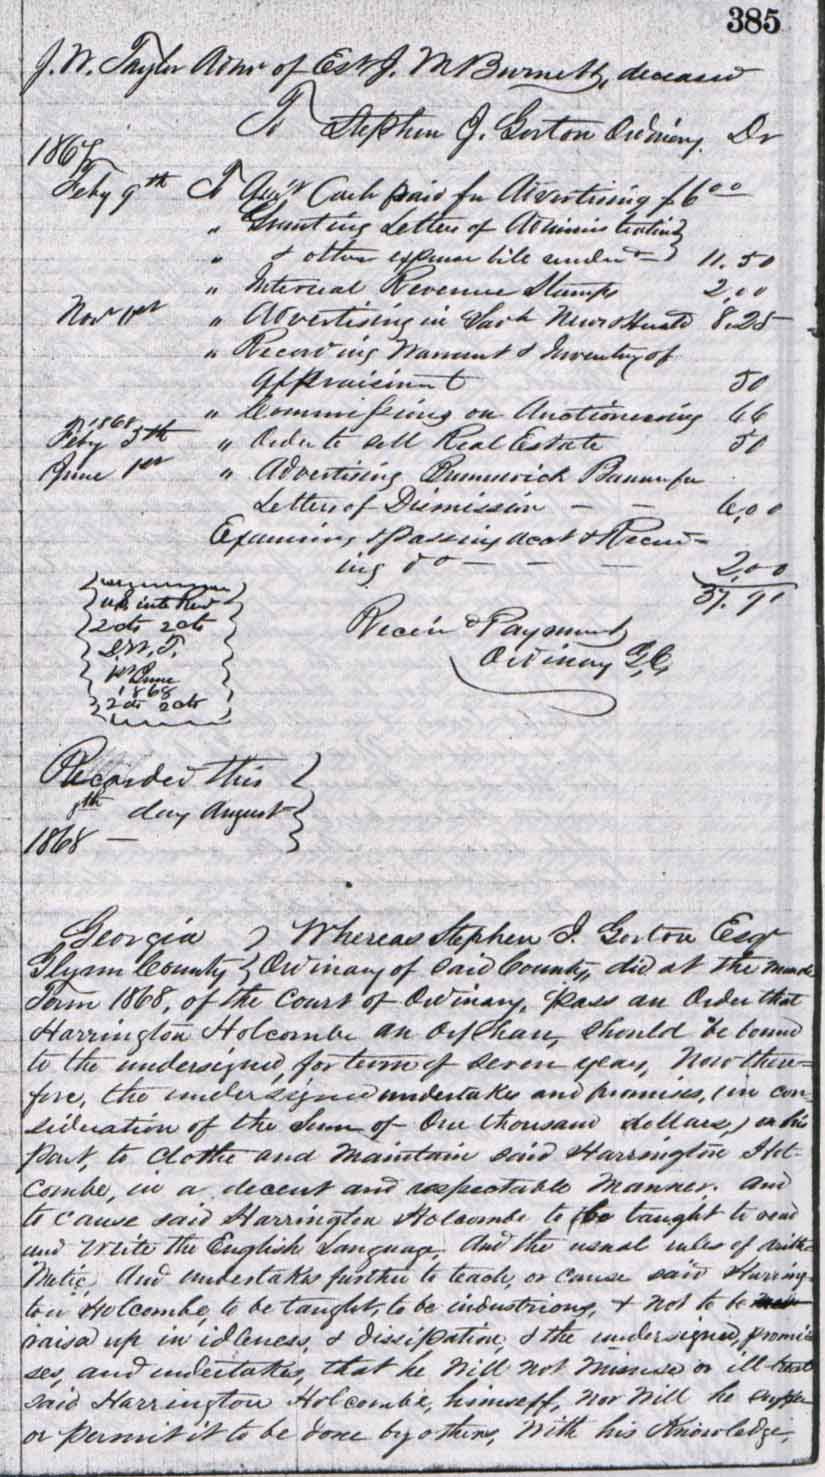 385
J. W. Taylor Admr of Est J. M Burnett, deceased
To Stephen J. Gorton Ordinary. Dr
1867
Feby 9th To Cash paid for Advertising $6 00
" Granting Letters of Administration }
" & other expense bill 11.50
" Internal Revenue Stamps 2,00
Nov 1st " Advertising in Sav h News & Herald 8.25
" Recording Warrant & Inventory of
appraisiment 50
" Commissions on Auctioneering 66
1868
Feby 5th " Order to sell Real Estate 50
June 1st " Advertising Brunswick Banner for
Letters of Dismission – – 6,00
Examining & Passing acct & Record=
ing do – – – 2,00
37.91
2 cts 2 cts
J. W. T.
1st June
1868
2 cts 2 cts
Receivd Payment
Ordinary G,C,
Recorded this
8th day August
1868 –
Georgia } Whereas Stephen J. Gorton Esqr
Glynn County } Ordinary of said County, did at the
Term 1868, of the Court of Ordinary, pass an Order that
Harrington Holcombe an orphan, should be bound
to the undersigned, for term of seven years, Now there=
fore, the undersigned undertakes and promises, (in con
sideration of the Sum of One thousand dollars,) on his
part, to clothe and maintain said Harrington Hol-
combe, in a decent and respectable manner. and
to cause said Harrington Holcombe to be taught to read
and write the English Language, and the usual rules of Arith
matic, and undertakes further to teach, or cause said Harring
ton Holcombe, to be taught, to be industrious, & not to be
raised up in idleness, & dissipation, & the undersigned, promi
ses, and undertakes, that he will not misuse or ill-treat
said Harrington Holcombe, himself, nor will he suffer
or permit it to be done by others, with his knowledge,